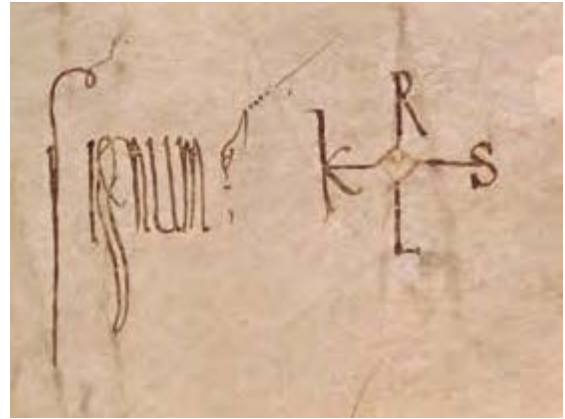 Signum
K R S L